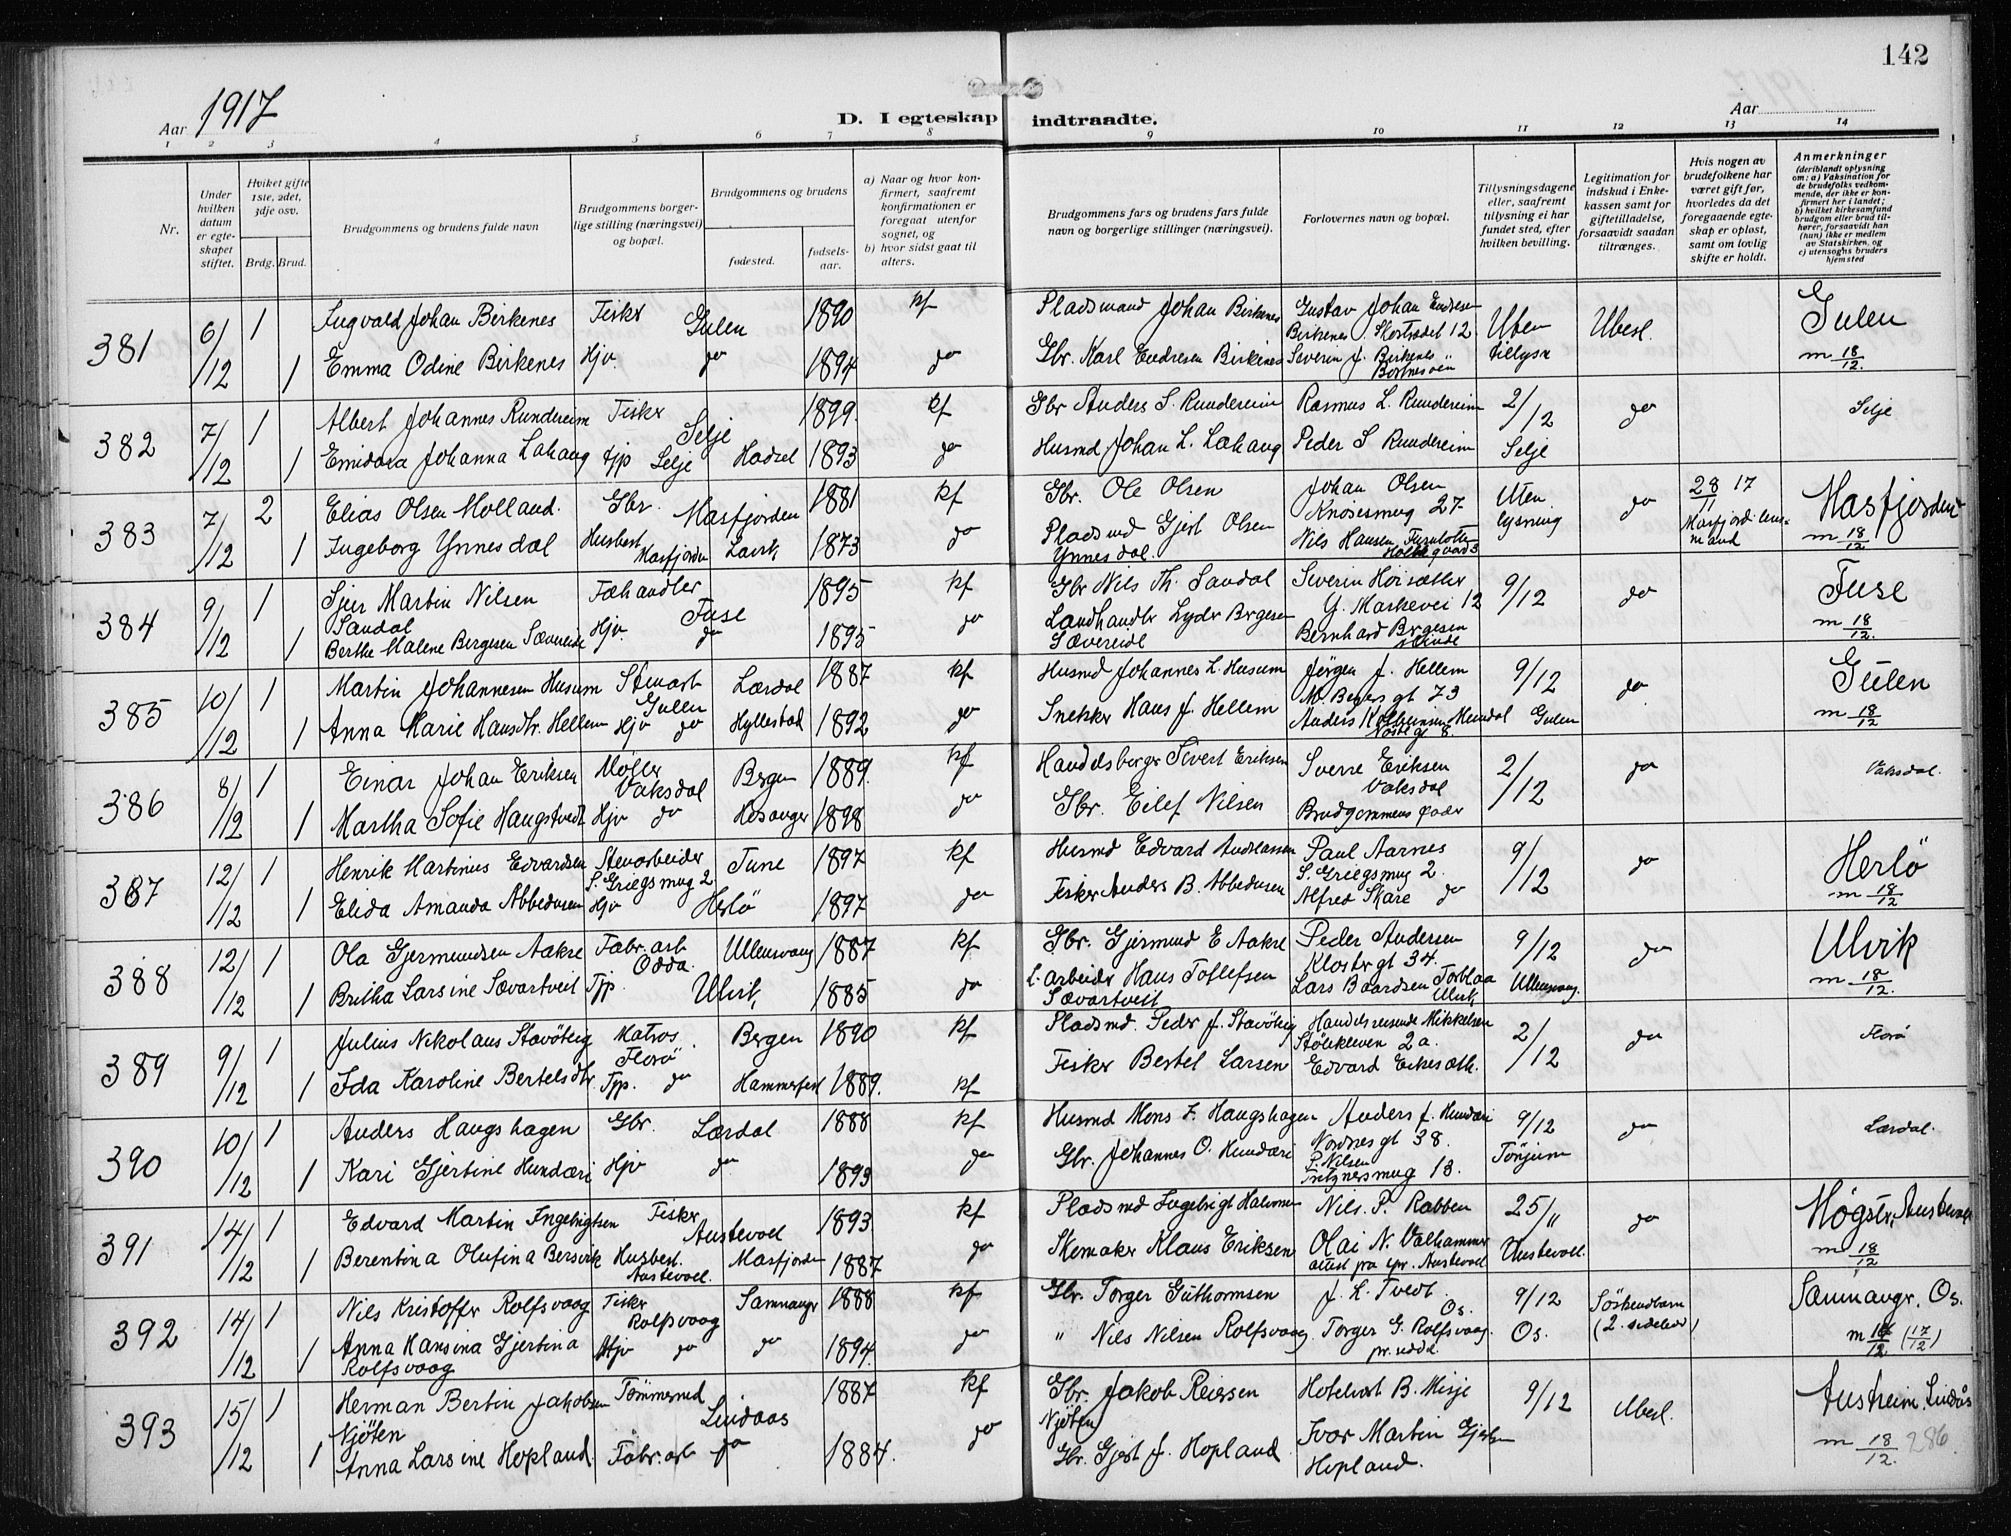 142
Aar 1917
D. I egteskap indtraadte.
Aar
1 2 3 4 5 6 7 8 9 10 11 12 13 14
Nr.
Under hvilken datum er egteskapet stiftet.
Hvilket gifte 1ste, 2det, 3dje osv.
Brdg. Brud.
Brudgommens og brudens fulde navn
Brudgommens borgerlige stilling (næringsvei) og bopæl.
Brudgommens og brudens
fødested.
fødselsaar.
a) Naar og hvor konfirmert, saafremt konfirmationen er foregaat utenfor sognet, og
b) hvor sidst gaat til alters.
Brudgommens fars og brudens fars fulde navn og borgerlige stillinger (næringsvei).
Forlovernes navn og bopæl.
Tillysningsdagene eller, saafremt tillysning ei har fundet sted, efter hvilken bevilling.
Legitimation for indskud i Enkekassen samt for giftetilladelse, forsaavidt saadan tiltrænges.
Hvis nogen av brudefolkene har været gift før, hvorledes da det foregaaende egteskap er opløst, samt om lovlig skifte er holdt.
Anmerkninger
(deriblandt oplysning om: a) Vaksination for de brudefolks vedkommende, der ikke er konfirmert her i landet; b) hvilket kirkesamfund brudgom eller brud tilhører, forsaavidt han (hun) ikke er medlem av Statskirken, og c) utensogns bruders hjemsted
381 6/12 1 Ingvald Johan Birkenes Fisker Gulen 1890 kf Pladsmand Johan Birkenes Gustav Johan Endresen Uten Ubesl. Gulen
Birkenes 12
1 Emma Odine Birkenes Hjv. do 1894 do Gbr. Karl Endresen Birkenes Severin J. Birkenes tillysn m 18/12.
382 7/12 1 Albert Johannes Rundereim Fisker Selje 1899. kf Gbr Anders S. Rundereim Rasmus L. Rundereim 2/12 do Selje
1 Johanna Lahaug tjp Selje Hadsel 1893 do Husmd Johan L. Lahaug Peder S Rundereim Selje
383 7/12 2 Elias Olsen Molland. Gbr. Masfjorden 1881 kf Gbr. Ole Olsen Johan Olsen Uten do 28/11 17 Masfjorden
Knøsesmug 27
1 Ingeborg Ynnesdal Husbest. Masfjorden Lavik 1873 do Pladsmd Gjert Olsen Ynnesdal. Nils Hansen lysning m 18/12
384 9/12 1 Sjur Martin Nilsen Sandal Fæhandler Fuse 1895 kf Gbr Nils Th. Sandal Severin Hoisæther 9/12 do Fuse
Y. Markevei 12
1 Berthe Malene Bergesen Sævereide Hjv. do 1895 do Landhandlr Lyder Bergesen Sævereide Bernhard Brgesen Minde m 18/12.
385 10/12 1 Martin Johannesen Husum Stuart Gulen Lærdal 1887 kf Husmd Johannes L. Husum Jørgen J. Hellem 9/12 do. Gulen
gt 73
1 Anna Marie Hansdtr. Hellem Hjv do Hyllestad 1892 do Snekker Hans J. Hellem Anders Gulen m 18/12
386 8/12 1 Einar Johan Eriksen Møller Vaksdal Bergen 1889. kf Handelsborger Sivert Eriksen Sverre Eriksen Vaksdal 2/12 do Vaksdal.
1 Martha Sofie Haugstvedt Hjv do Hosanger 1898 do Gbr. Eilef Nilsen Brudgommens fader
387 12/12 1 Henrik Martinus Edvardsen Stenarbeider S. Griegsmug 2 Tune 1897 kf Husmd Edvard Andreassen Paul Aarnes 9/12 do Herlø
S. Griegsmug 2.
1 Elida Amanda Abbedusen Hjv Herlö 1897 do Fisker Anders B. Abbedusen Alfred Skare do m 18/12
388 12/12 1 Ola Gjermundsen Aakre Fabr. arb Odda. Ullensvang 1887 kf. Gbr. Gjermund E Aakre Peder Andersen 9/12 do Ulvik
Kloster gt 34.
1 Britha Larsine Sævartveit Tjp. Ulvik 1885 do L. arbeider Hans Tollefsen Sævartveit Lars Baardsen Torblaa Ulvik Ullensvang. m 18/12.
389 9/12 1 Julius Nikolaus Stavöstrig Matros Florö Bergen 1890 kf Pladsmd. Peder J. Handelsreisende Mikkelsen 2/12 do Florø
Stölekleven 2a.
1 Ida Karoline Bertelsdtr Tjp. do Hammerfest 1889. kf Fisker Bertel Larsen Edvard
390 10/12 1 Anders Haugshagen Gbr. Lærdal 1888 kf Husmd Mons F. Haugshagen Anders J. Hundæri 9/12 do Lærdal.
Nordnes gt 38.
1 Kari Gjertine Hundæri Hjv do 1893 do Gbr. Johannes O. Hundæri P. Nilsen Tønjum
Fritznersmug 13.
391 14/12 1 Edvard Martin Ingebrigtsen Fisker Austevoll 1893 kf Pladsmd Ingebrigt Nils. P. Rabben 25/11 do Møgster, Austevoll
1 Berentina Olufina Bersvik Husbest. Austevoll. Masfjorden 1887 do Skomaker Klaus Eriksen Olai N. Valhammer Austevoll. m 18/12
392 14/12 1 Nils Kristoffer Rolfsvaag Fisker Rolfsvaag Samnanger 1888 kf Gbr. Torger Guthormsen J. L. Tvedt. Os. 9/12 Søskendbarn Samnangr. Os.
1 Anna Kansina Gjertina Rolfsvaag Hjv do do 1894. do " Nils Nilsen Rolfsvaag Torger G. Rolfsvaag Os. (2. sideled) m 18/12 (17/12)
393 15/12 1 Herman Bertin Jakobsen Njöten Tømmermd Lindaas 1887 kf Gbr. Jakob Reiersen Njöten Hotelvert B. Misje 9/12 Ubesl. Austrheim, Lindås
1 Anna Larsine Hopland. Fabr. arb do 1884. do Gbr. Gjert J. Hopland. Ivar Martin Hopland. m 18/12. 286